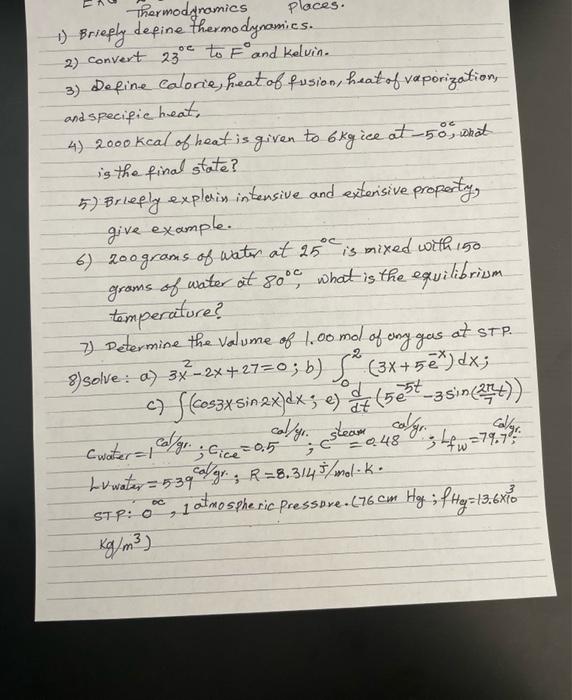 Thermodynamics Places.
1) Briefly define thermodynamics.
2) Convert 23°C to F° and Kelvin.
3) Define Calorie, heat of fusion, heat of vaporization,
and specific heat.
4) 2000 Kcal of heat is given to 6kg ice at -50°C, what
is the final state?
5) Briefly explain intensive and extensive property,
give example.
6) 200 grams of water at 25°C is mixed with 150
grams of water at 80°C, what is the equilibrium
temperature?
7) Determine the Volume of 1.00 mol of any gas at STP.
8) solve: a) 3x²-2x+27=0; b) ∫₀² (3x+5e⁻ˣ)dx;
c) ∫(cos3x sin2x)dx; e) d/dt (5e⁻⁵ᵗ - 3sin(2π/T t))
Cwater=1 cal/gr. ; Cice=0.5 cal/gr. ; Csteam=0.48 cal/gr. ; Lfw=79.7 cal/gr. ;
Lv water=539 cal/gr. ; R=8.314 J/mol.K.
STP: 0°C, 1 atmospheric Pressure. (76 cm Hg ; ρHg=13.6x10³
Kg/m³)